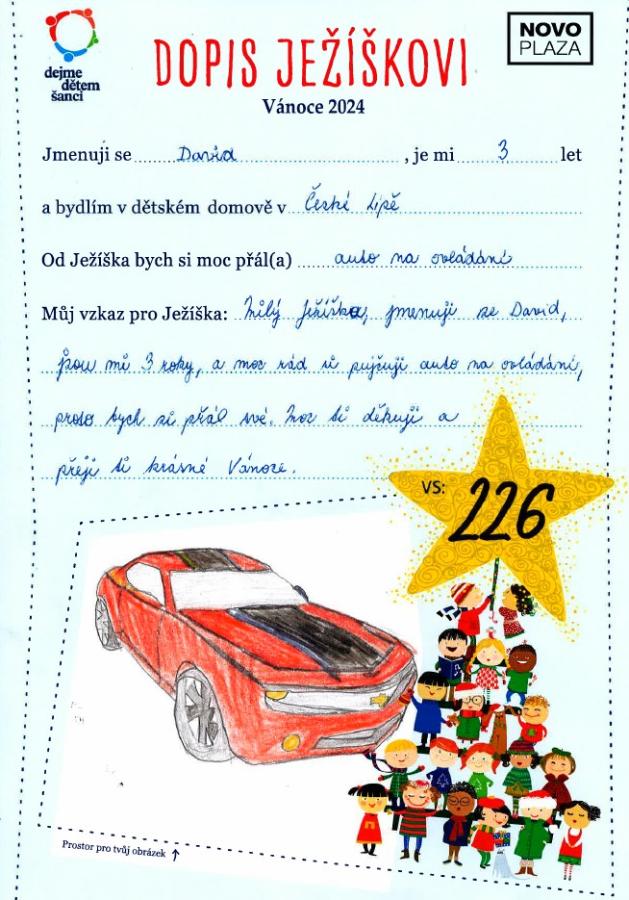 dejme
dětem
šanci
NOVO
PLAZA
DOPIS JEŽÍŠKOVI
Vánoce 2024
Jmenuji se David , je mi 3 let
a bydlím v dětském domově v České Lípě
Od Ježíška bych si moc přál(a) auto na ovládání
Můj vzkaz pro Ježíška: Milý Ježíšku, jmenuji se David,
jsou mi 3 roky, a moc rád si pujčuji auto na ovládání,
proto bych si přál své. Moc ti děkuji a
přeji ti krásné Vánoce.
VS: 226
Prostor pro tvůj obrázek ↑